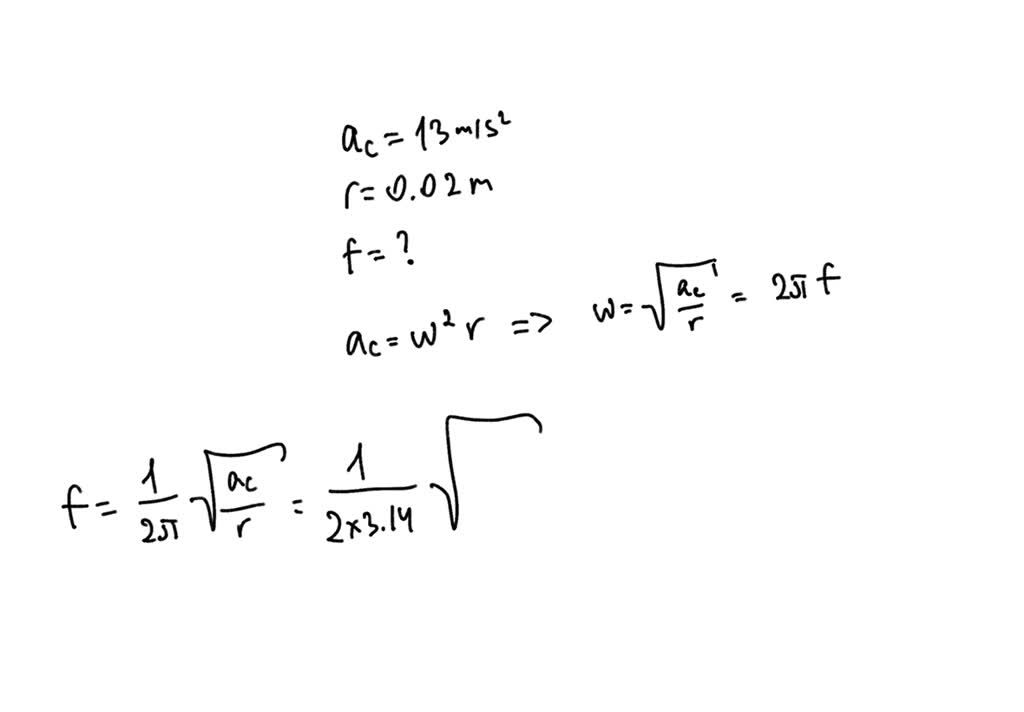 a_c = 13 m/s²
r = 0.02 m
f = ?
a_c = w² r => w = √(a_c/r) = 2π f
f = 1/2π √(a_c/r) = 1/(2×3.14) √